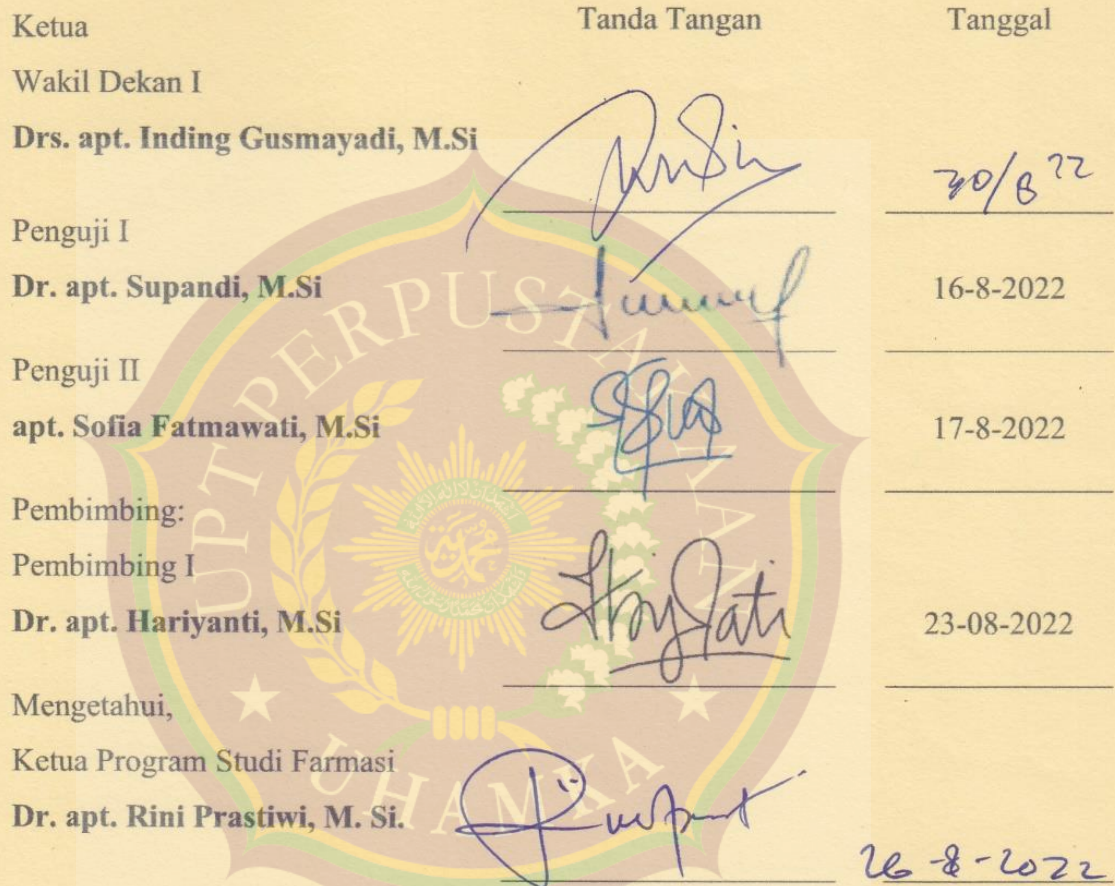 Ketua Tanda Tangan Tanggal
Wakil Dekan I
Drs. apt. Inding Gusmayadi, M.Si
30/8 22
Penguji I
Dr. apt. Supandi, M.Si 16-8-2022
Penguji II
apt. Sofia Fatmawati, M.Si 17-8-2022
Pembimbing:
Pembimbing I
Dr. apt. Hariyanti, M.Si 23-08-2022
Mengetahui,
Ketua Program Studi Farmasi
Dr. apt. Rini Prastiwi, M. Si.
26-8-2022
UPT PERPUSTAKAAN
UHAMKA